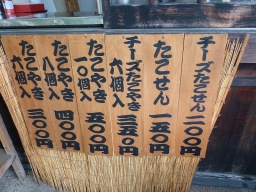 チーズたこせん 二〇〇円
たこせん 一五〇円
チーズたこやき
六個入 三五〇円
たこやき
一〇個入 五〇〇円
たこやき
八個入 四〇〇円
たこやき
六個入 三〇〇円